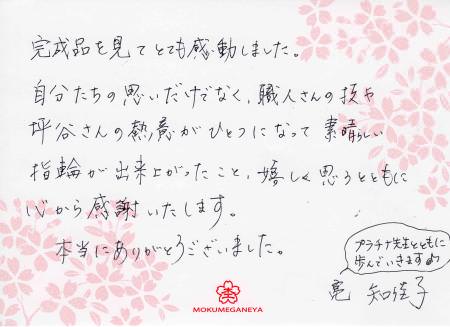 完成品を見てとても感動しました。
自分たちの思いだけでなく、職人さんの技や
坪谷さんの熱意がひとつになって 素晴らしい
指輪が出来上がったこと、嬉しく思うとともに
心から感謝いたします。
本当にありがとうございました。
プラチナ先生とともに
歩んでいきます♪
亮 知佳子
MOKUMEGANEYA